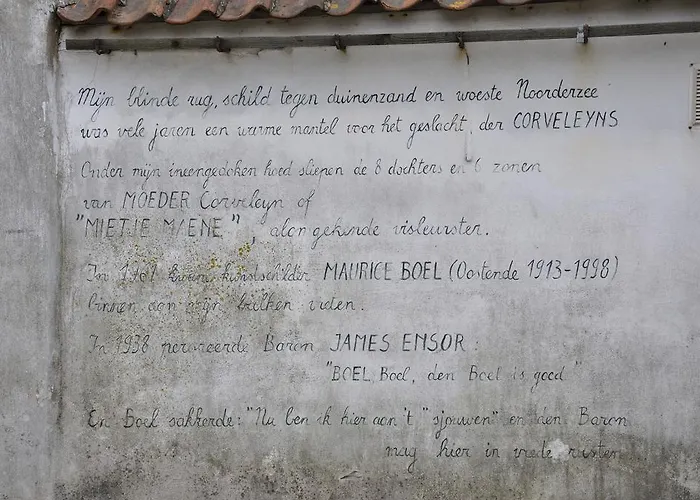 Mijn blinde rug, schild tegen duinenzand en woeste Noorderzee
was vele jaren een warme mantel voor het geslacht, der CORVELEYNS
Onder mijn ineengedoken hoed sliepen de 8 dochters en 6 zonen
van MOEDER Corveleyn of
"MIETJE MAENE", alom gekende visleurster.
In kunstschilder MAURICE BOEL (Oostende 1913-1998)
binnen aan mijn balken
In 1938 Baron JAMES ENSOR:
"BOEL, Boel, den Boel is goed"
En Boel sakkerde: "Nu ben ik hier aan't "sjouwen" en den Baron
mag hier in vrede rusten